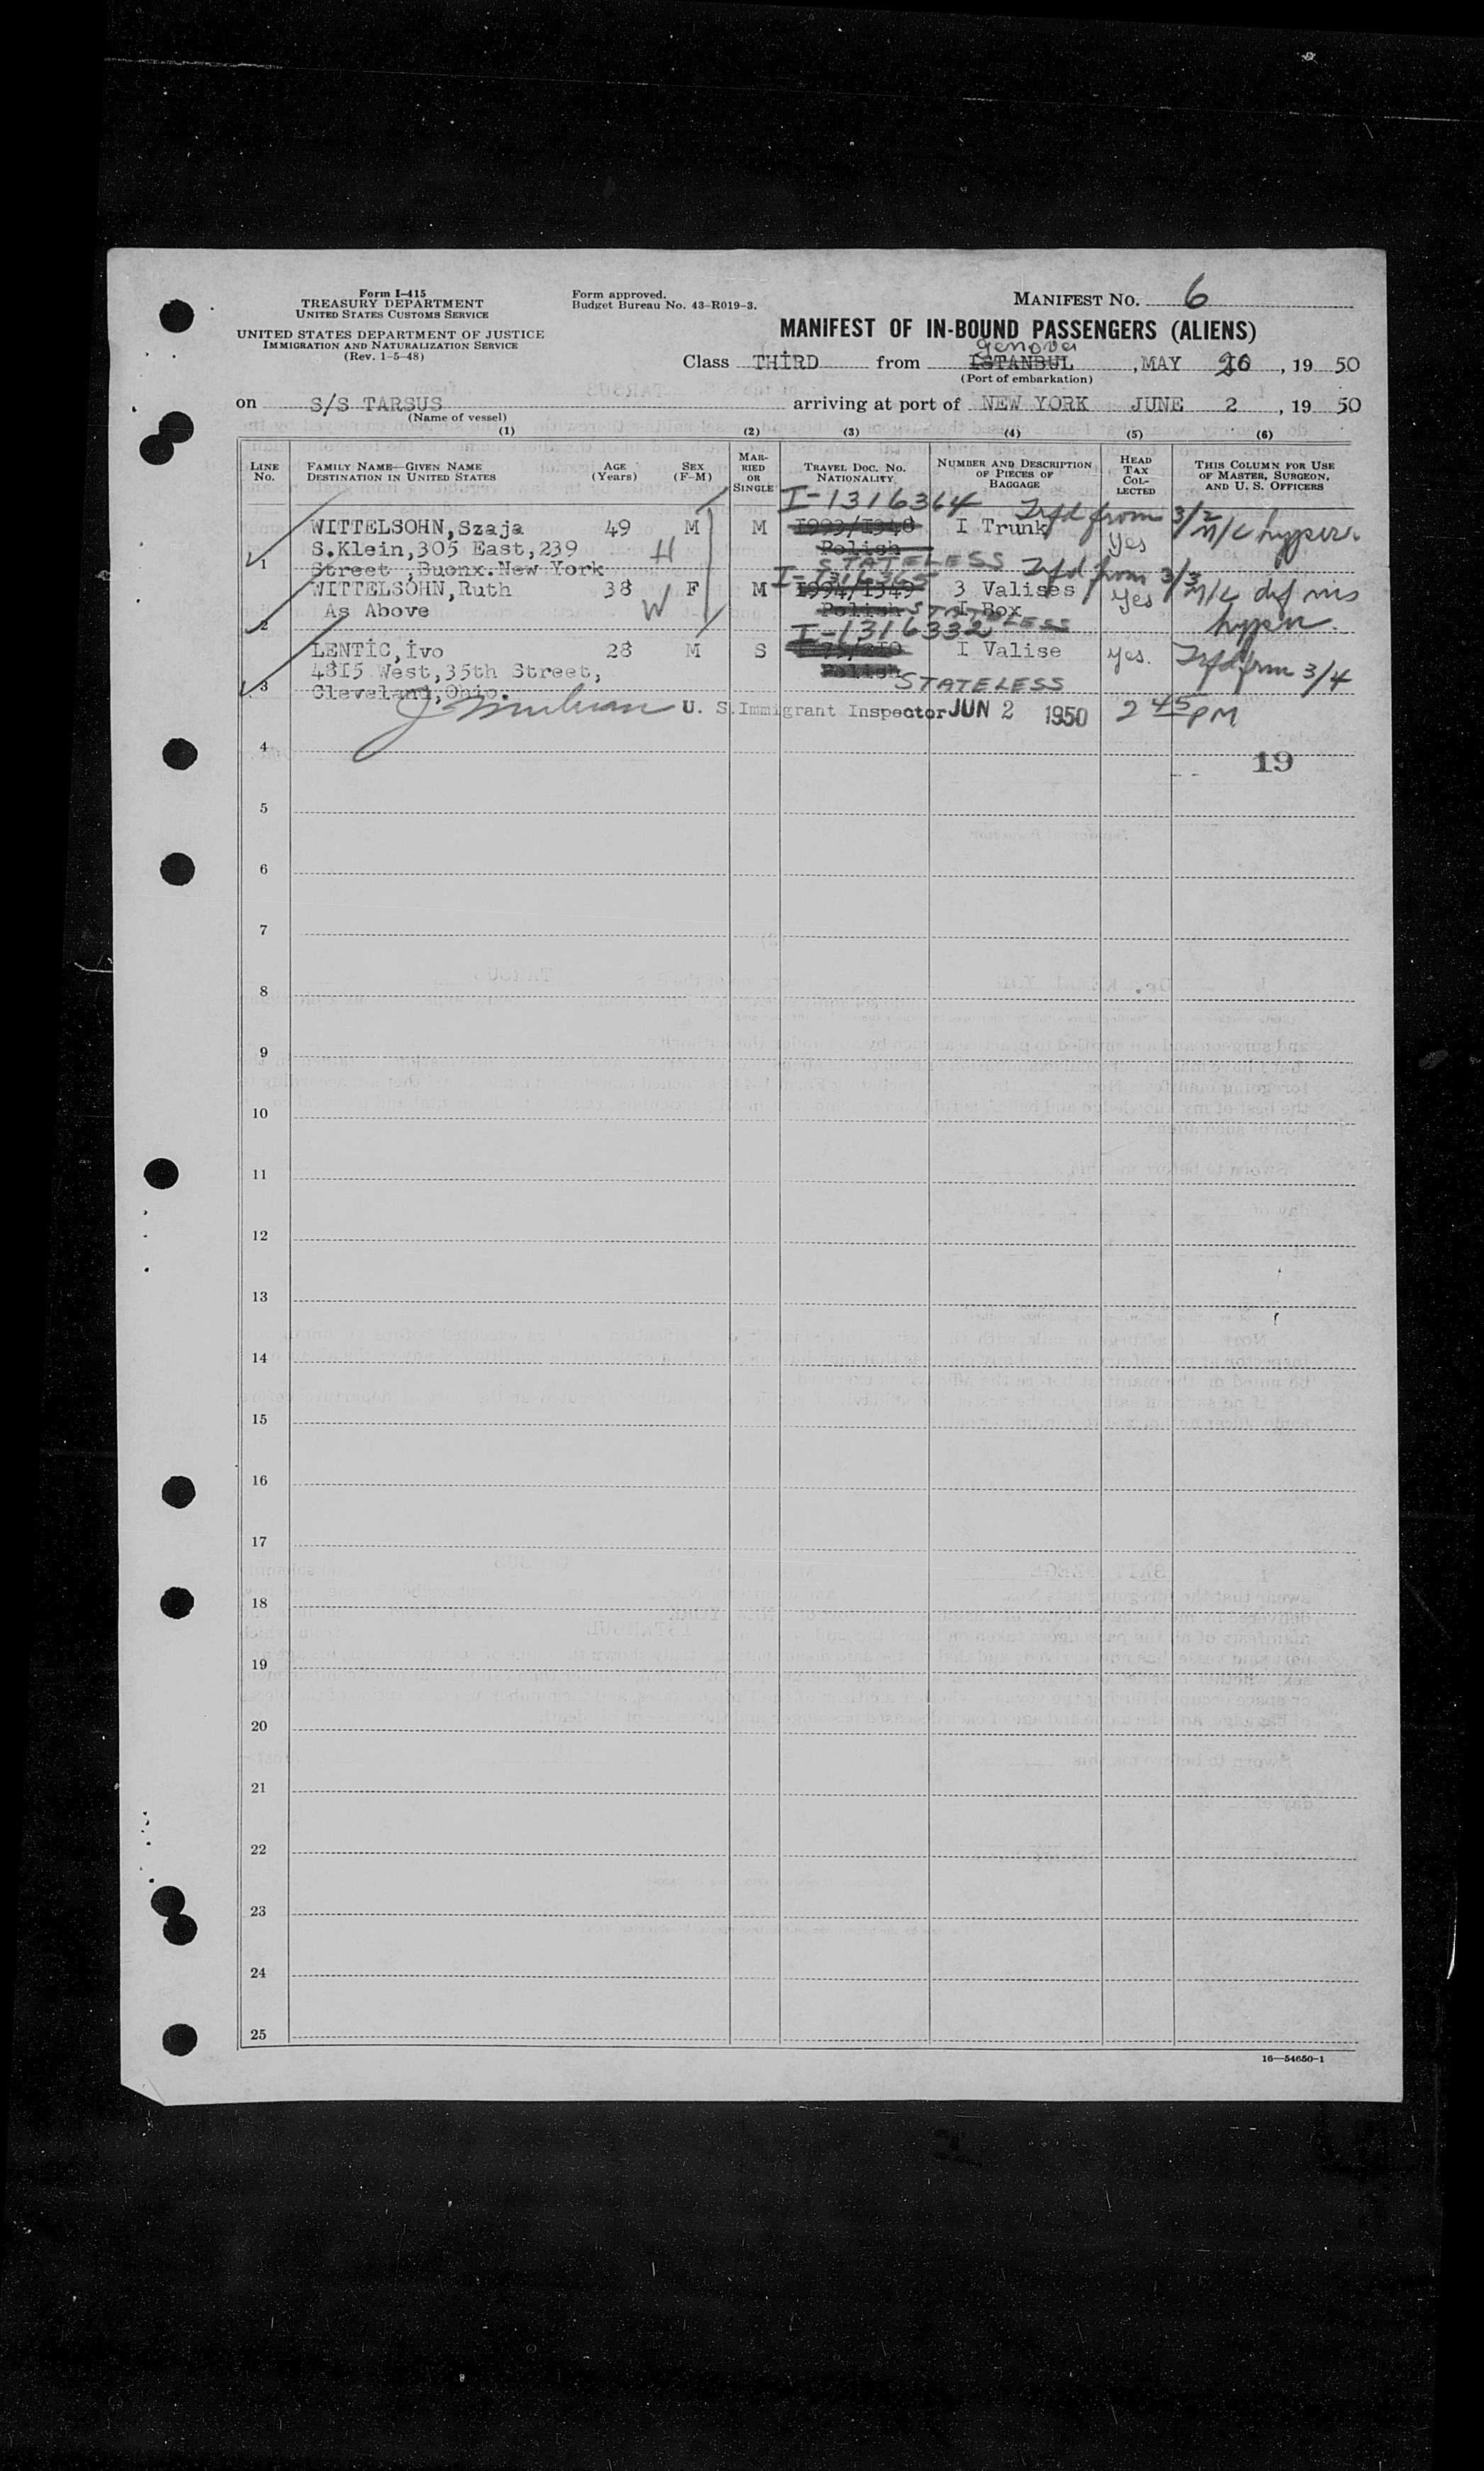 Form I-415
TREASURY DEPARTMENT
UNITED STATES CUSTOMS SERVICE
UNITED STATES DEPARTMENT OF JUSTICE
IMMIGRATION AND NATURALIZATION SERVICE
(Rev. 1-5-48)
Form approved.
Budget Bureau No. 43-R019-3.
MANIFEST NO. 6
MANIFEST OF IN-BOUND PASSENGERS (ALIENS)
Genova
Class THİRD from ISTANBUL, MAY 20, 19 50
(Port of embarkation)
on S/S TARSUS arriving at port of NEW YORK JUNE 2, 19 50
(Name of vessel)
(1) (2) (3) (4) (5) (6)
LINE No. FAMILY NAME—GIVEN NAME DESTINATION IN UNITED STATES AGE (Years) SEX (F-M) MARRIED OR SINGLE TRAVEL DOC. NO. NATIONALITY NUMBER AND DESCRIPTION OF PIECES OF BAGGAGE HEAD TAX COLLECTED THIS COLUMN FOR USE OF MASTER, SURGEON, AND U. S. OFFICERS
I-1316364 Trfd from 3/2
WITTELSOHN, Szaja 49 M M 1993/1348 I Trunk Yes n/c hyper.
S.Klein, 305 East, 239 H Polish
1 Street, Buonx. New York STATELESS
I-1316365 Trfd from 3/3
WITTELSOHN, Ruth 38 F M 1994/1349 3 Valises Yes n/c def vis
As Above W Polish STATELESS I Box hyper.
2
I-1316332
LENTİC, İvo 28 M S I Valise yes. Trfd from 3/4
4815 West, 35th Street, Polish
3 Cleveland, Ohio. STATELESS
U. S. Immigrant Inspector JUN 2 1950 2 45 PM
4
19
5
6
7
8
9
10
11
12
13
14
15
16
17
18
19
20
21
22
23
24
25
16—54650-1